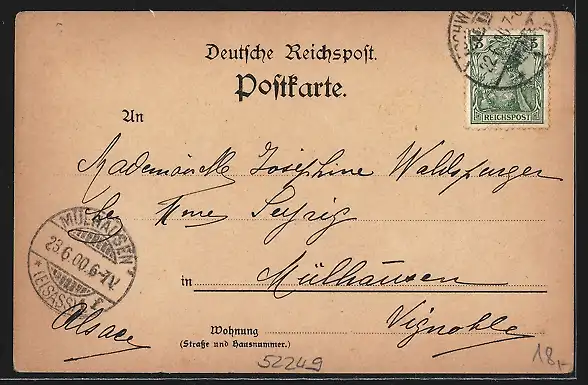 Deutsche Reichspost.
Postkarte.
5 5
REICHSPOST
An
Mademoiselle Joséphine Waldsperger
Mme
in Mülhausen
MÜLHAUSEN
23.6.00.6-7N.
(ELSASS)
f
Alsace
Vignoble
Wohnung
(Straße und Hausnummer.)
52249
18,-